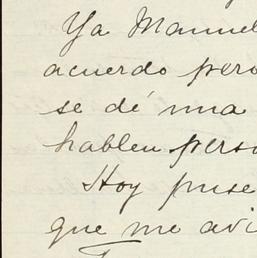 Ya Manuel
acuerdo pero
se dé una
hablen perso
Hoy puse
que me avi